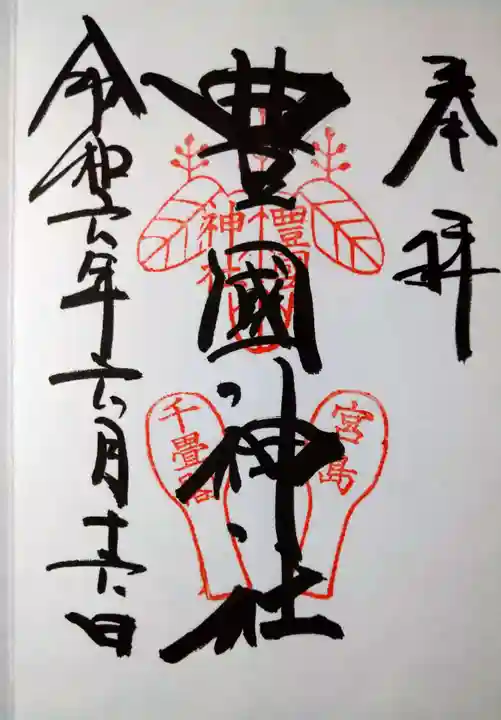 奉拝
豊國神社
令和六年六月十六日
豊國
神社
宮島
千畳閣